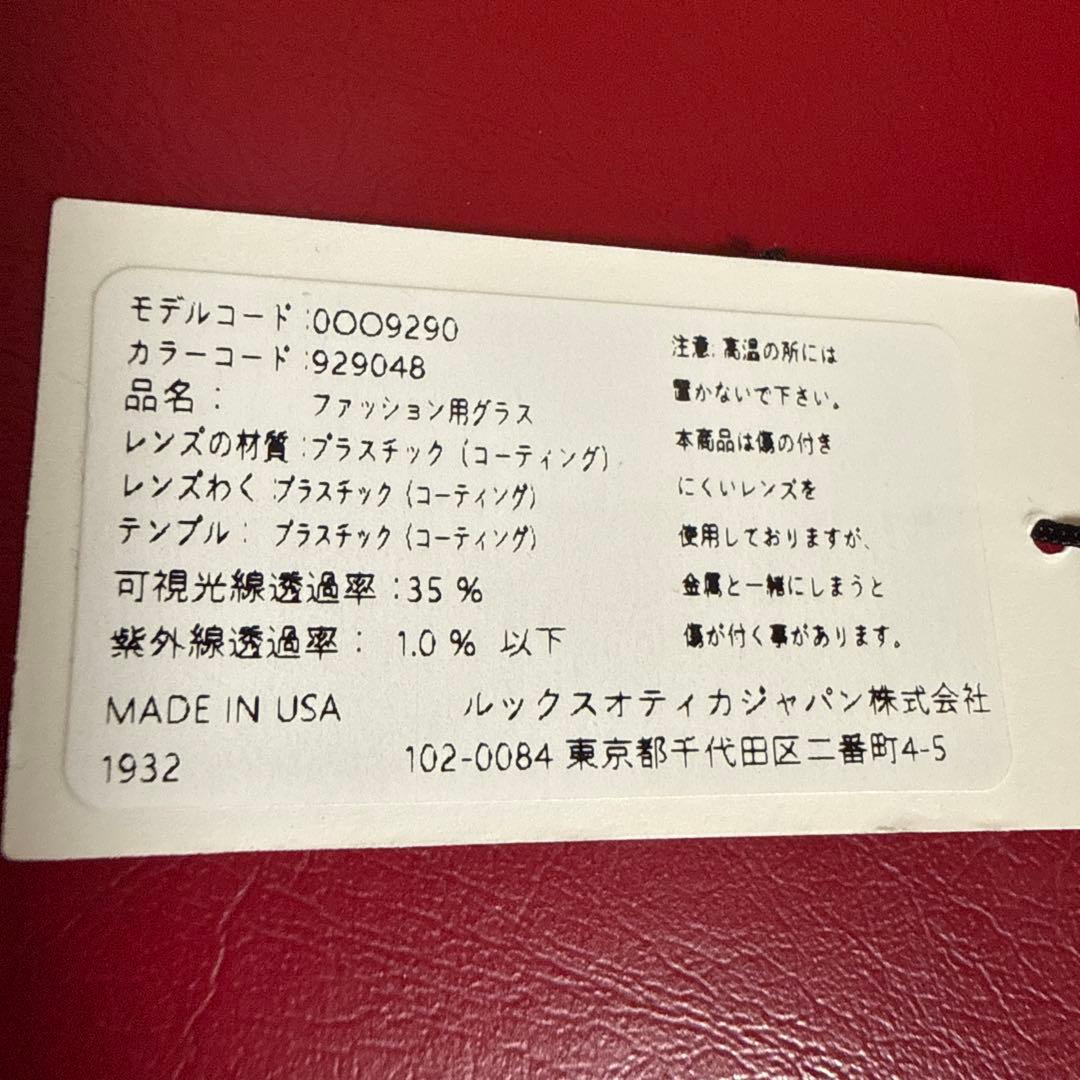 モデルコード:0OO9290
カラーコード:929048
品名: ファッション用グラス
レンズの材質:プラスチック (コーティング)
レンズわく:プラスチック (コーティング)
テンプル: プラスチック (コーティング)
可視光線透過率:35 %
紫外線透過率: 1.0 % 以下
MADE IN USA
1932
注意:高温の所には
置かないで下さい。
本商品は傷の付き
にくいレンズを
使用しておりますが、
金属と一緒にしまうと
傷が付く事があります。
ルックスオティカジャパン株式会社
102-0084 東京都千代田区二番町4-5